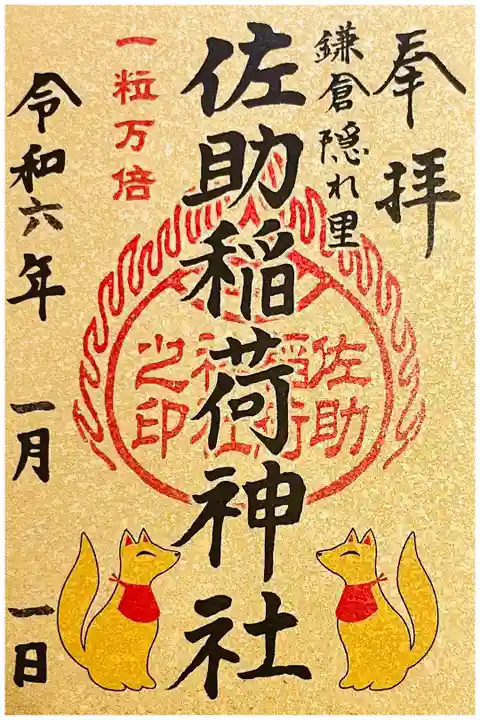 奉拝
鎌倉隠れ里
佐助稲荷神社
佐助
稲荷
神社
之印
一粒万倍
令和六年 一月 一日